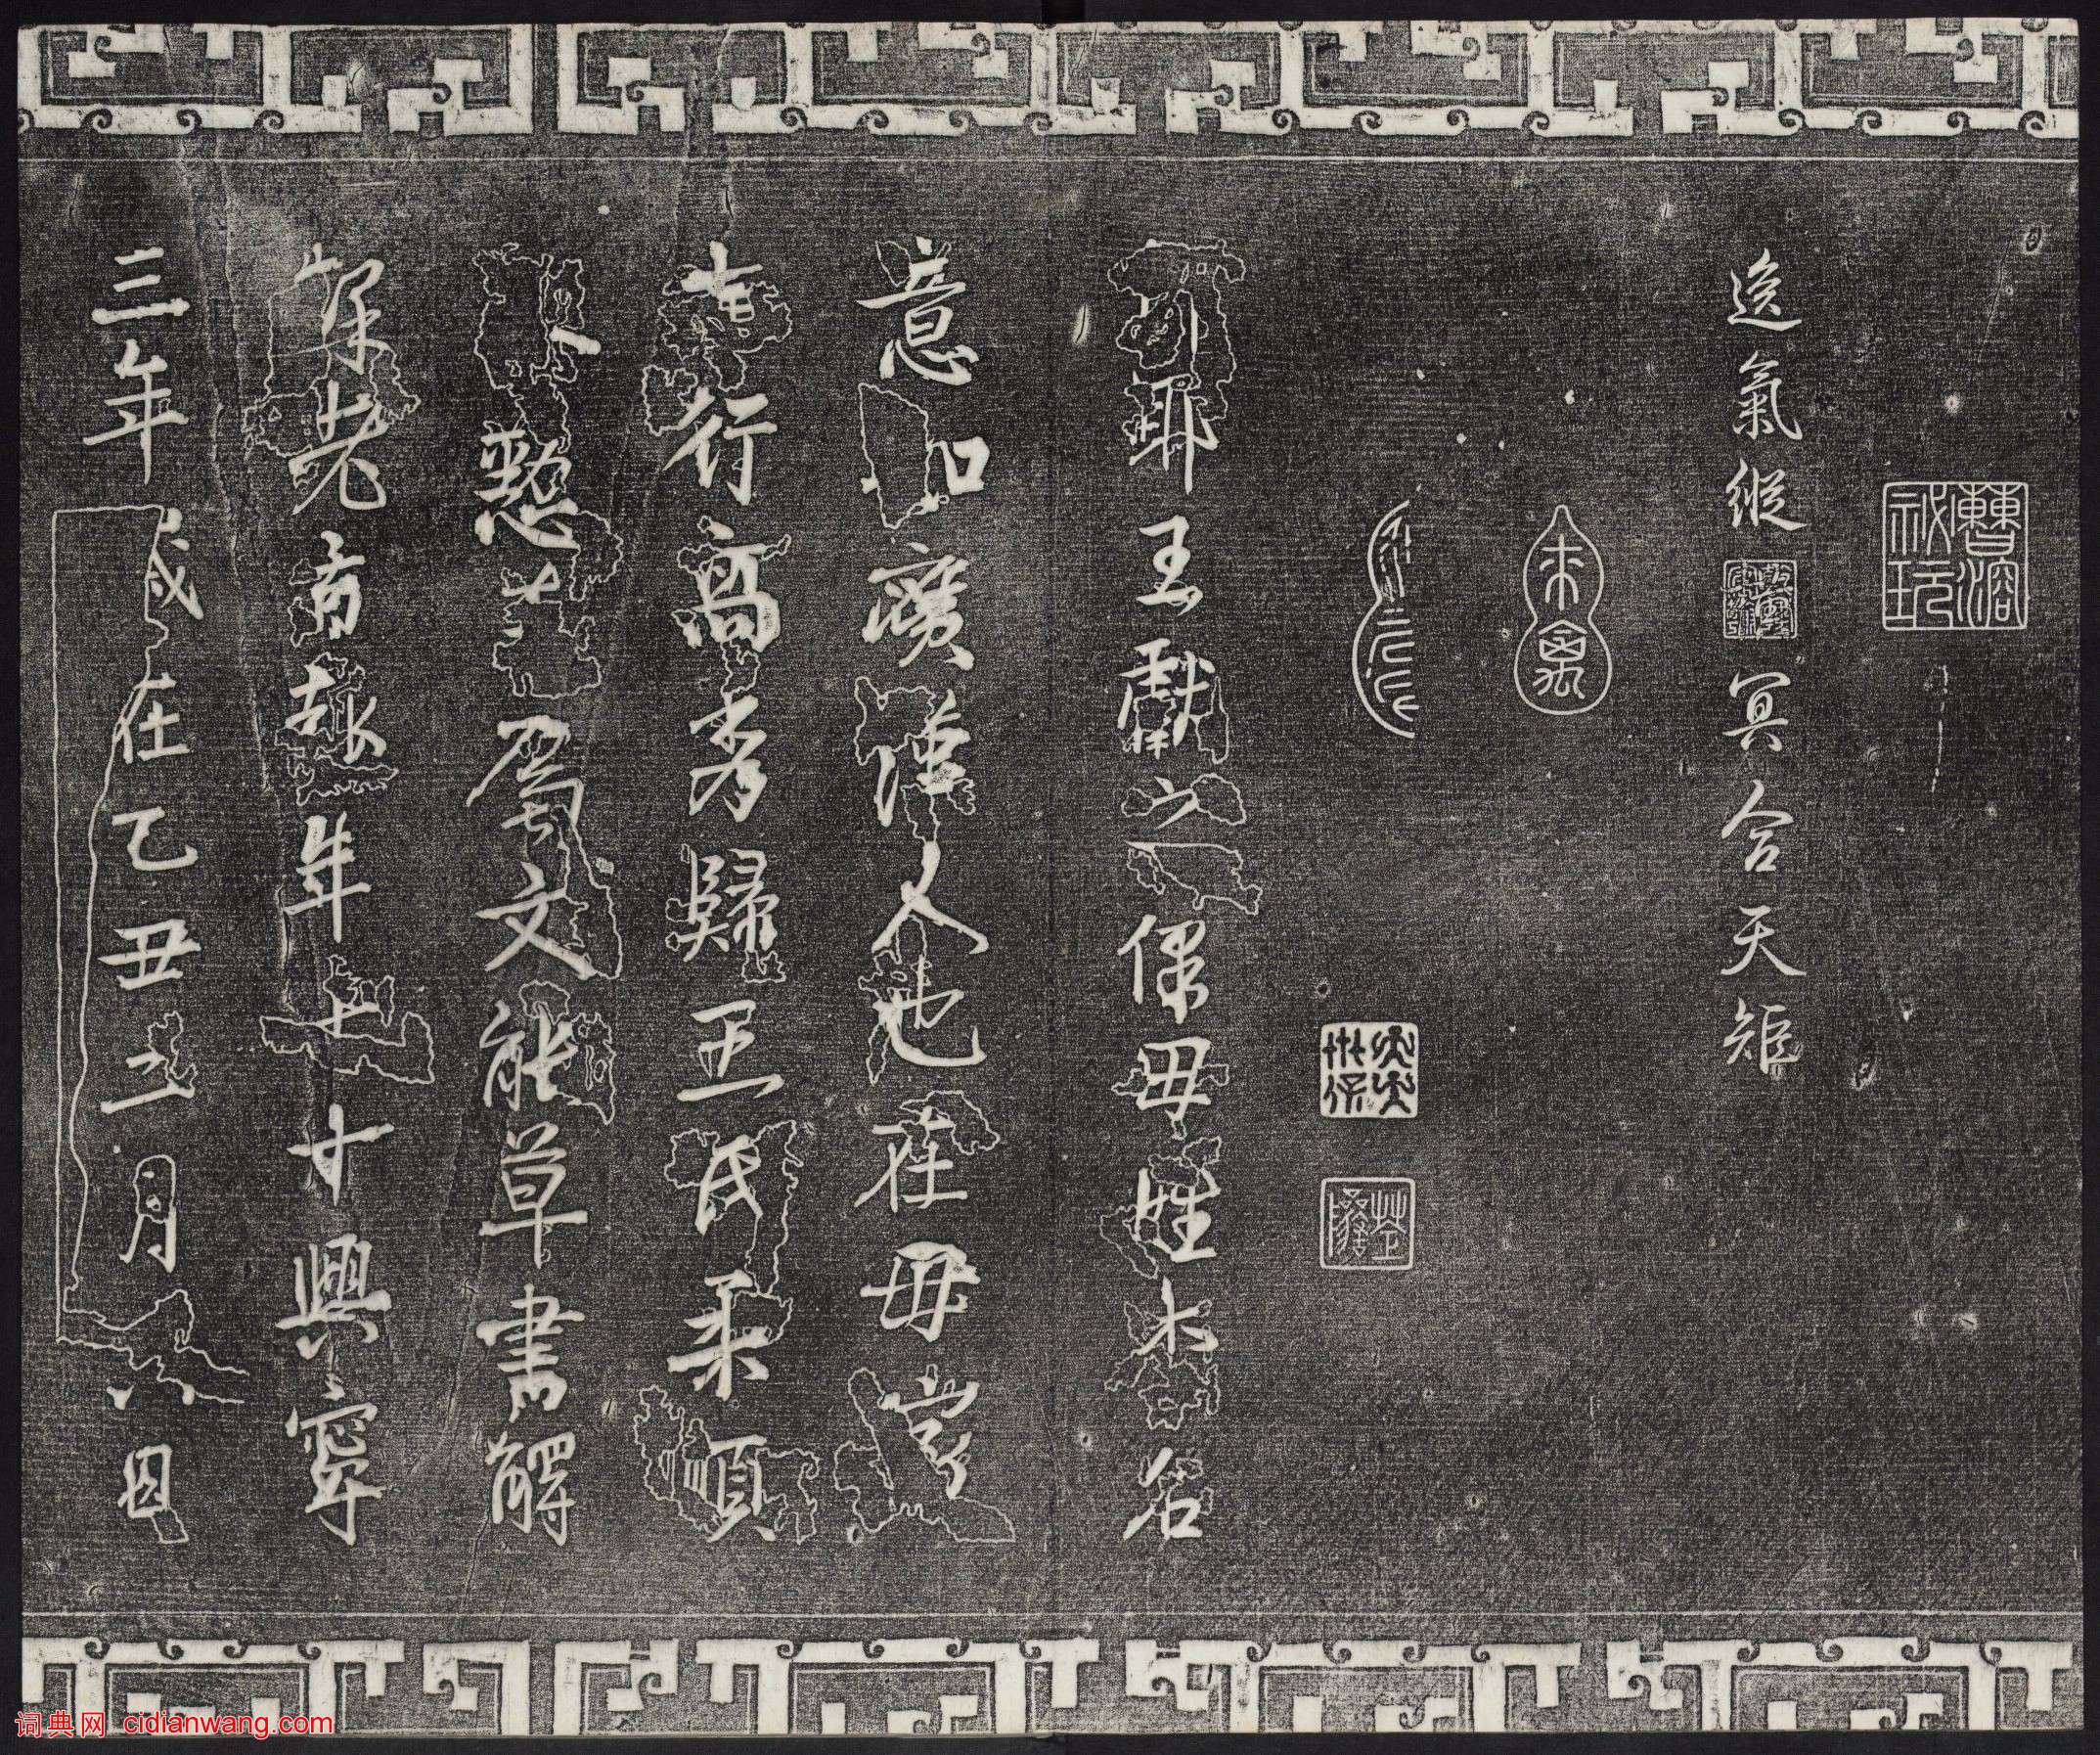 曹溶秘玩
逸氣縱
冥合天矩
琊王獻之保母姓李名
意如廣漢人也在母家
志行高秀歸王氏柔順
恭懃善屬文能草書解
釋老旨趣年七十興寧
三年歲在乙丑二月六日
词典网 cidianwang.com